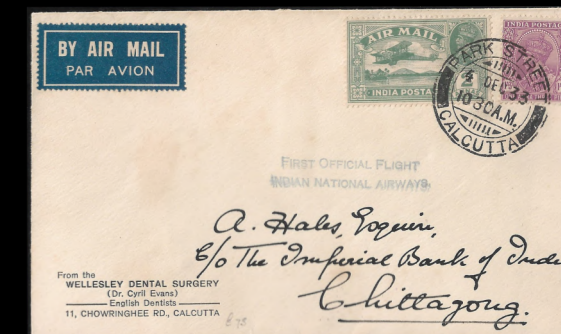 BY AIR MAIL
PAR AVION
AIR MAIL
INDIA POSTAGE
INDIA POSTAG
PARK STREE
4 DEC. 33
10 30 A.M.
CALCUTTA
FIRST OFFICIAL FLIGHT
INDIAN NATIONAL AIRWAYS.
A. Hales, Esquire,
C/o The Imperial Bank of Indi
Chittagong.
From the
WELLESLEY DENTAL SURGERY
(Dr. Cyril Evans)
English Dentists
11, CHOWRINGHEE RD., CALCUTTA